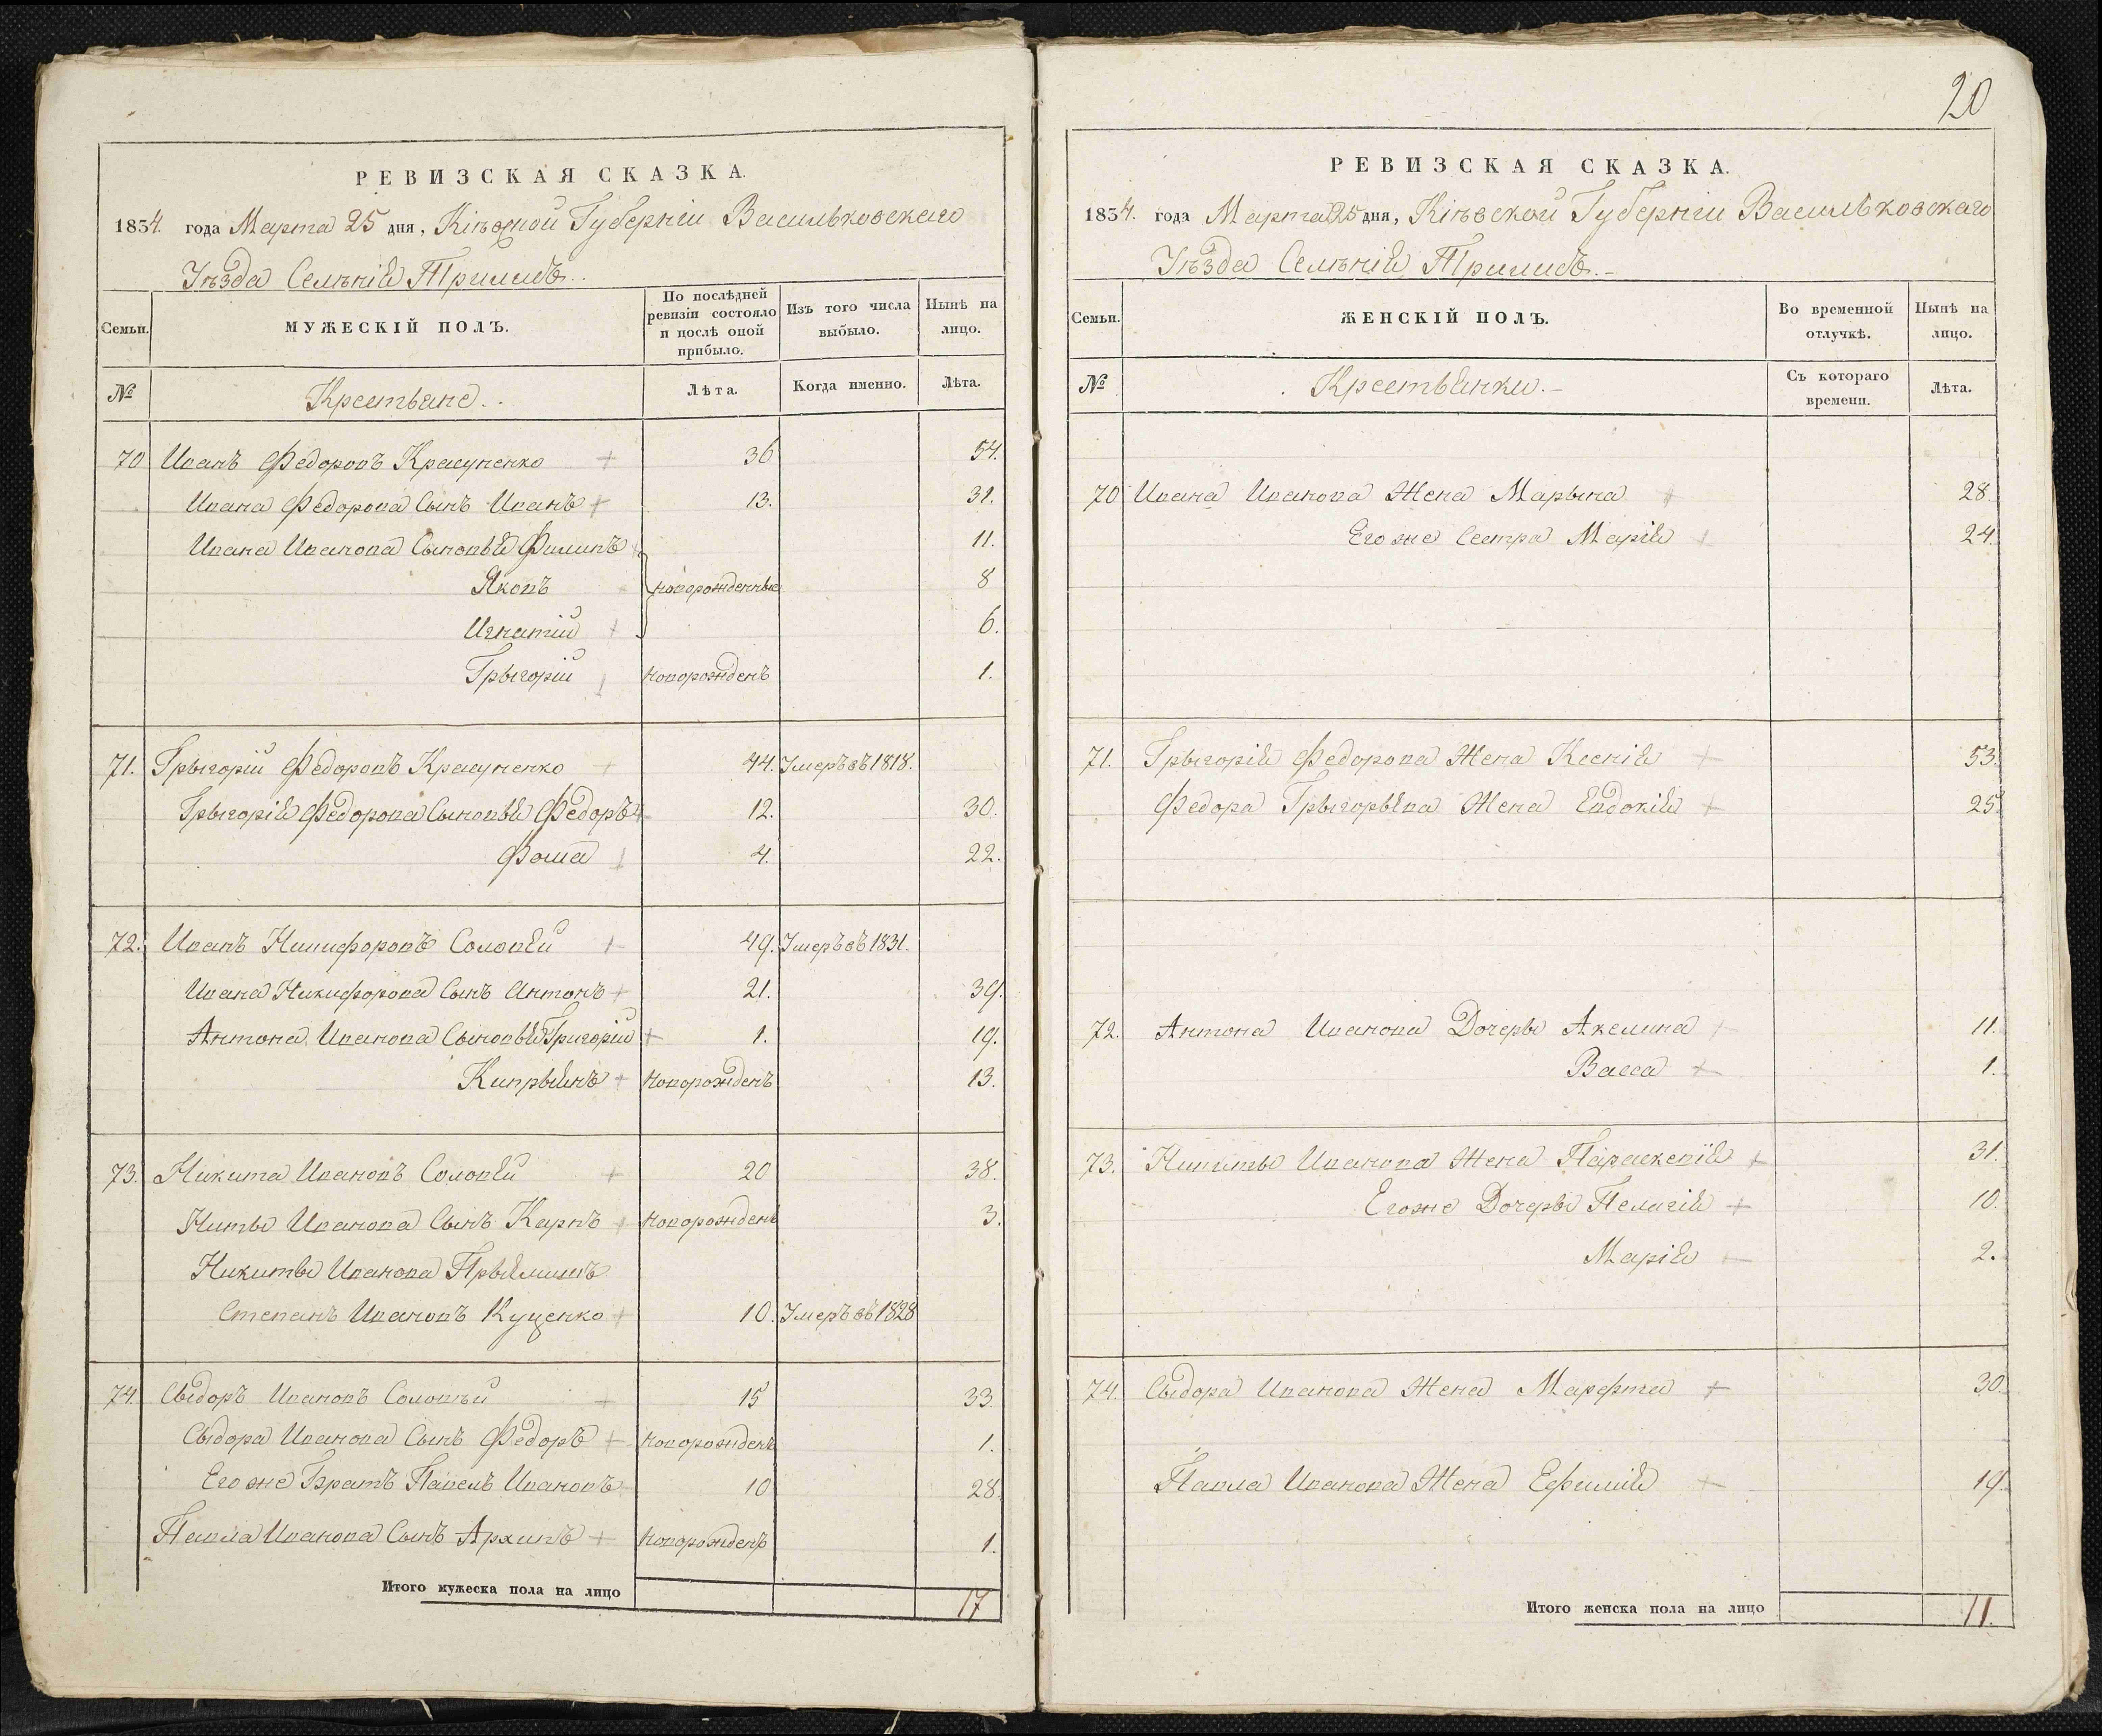 РЕВИЗСКАЯ СКАЗКА.
1834. года Марта 25 дня, Кіевской Губерніи Васильковскаго
Уѣзда Селенія Трилисъ.
Семьи.
МУЖЕСКІЙ ПОЛЪ.
По послѣдней ревизіи состояло и послѣ оной прибыло.
Изъ того числа выбыло.
Нынѣ на лицо.
№ Крестьяне. Лѣта. Когда именно. Лѣта.
70 Иванъ Федоровъ Красуненко 36 54.
Ивана Федорова Сынъ Иванъ 13. 31.
Ивана Иванова Сыновья Филипъ 11.
Яковъ новорожденные 8
Игнатій 6.
Грыгорій новорожденъ 1.
71. Грыгорій Федоровъ Красуненко 44. Умеръ въ 1818.
Грыгорія Федорова Сыновья Федоръ 12. 30.
Фома 4. 22.
72. Иванъ Никифоровъ Соловей 49. Умеръ въ 1831.
Ивана Никифорова Сынъ Антонъ 21. 39.
Антона Иванова Сыновья Григорій 1. 19.
Кипрыянъ новорожденъ 13.
73. Никита Ивановъ Соловей 20 38.
Никиты Иванова Сынъ Карпъ новорожденъ 3.
Никиты Иванова Прыймышъ
Степанъ Ивановъ Куценко 10. Умеръ въ 1828
74. Сыдоръ Ивановъ Соловѣй 15 33.
Сыдора Иванова Сынъ Федоръ новорожденъ 1.
Его же Братъ Павелъ Ивановъ 10 28.
Павла Иванова Сынъ Архипъ новорожденъ 1.
Итого мужеска пола на лицо 17
20
РЕВИЗСКАЯ СКАЗКА.
1834. года Марта 25 дня, Кіевской Губерніи Васильковскаго
Уѣзда Селенія Трилисъ.
Семьи.
ЖЕНСКІЙ ПОЛЪ.
Во временной отлучкѣ.
Нынѣ на лицо.
№ Крестьянки. Съ котораго времени. Лѣта.
70 Ивана Иванова Жена Марына 28.
Его же Сестра Марія 24.
71. Грыгорія Федорова Жена Ксенія 53.
Федора Грыгорьева Жена Евдокія 25.
72. Антона Иванова Дочеры Акелина 11.
Васса 1.
73. Никиты Иванова Жена Параскевія 31.
Его же Дочеры Пелагія 10.
Марія 2.
74. Сыдора Иванова Жена Марфта 30.
Павла Иванова Жена Ефимія 19.
Итого женска пола на лицо 11.